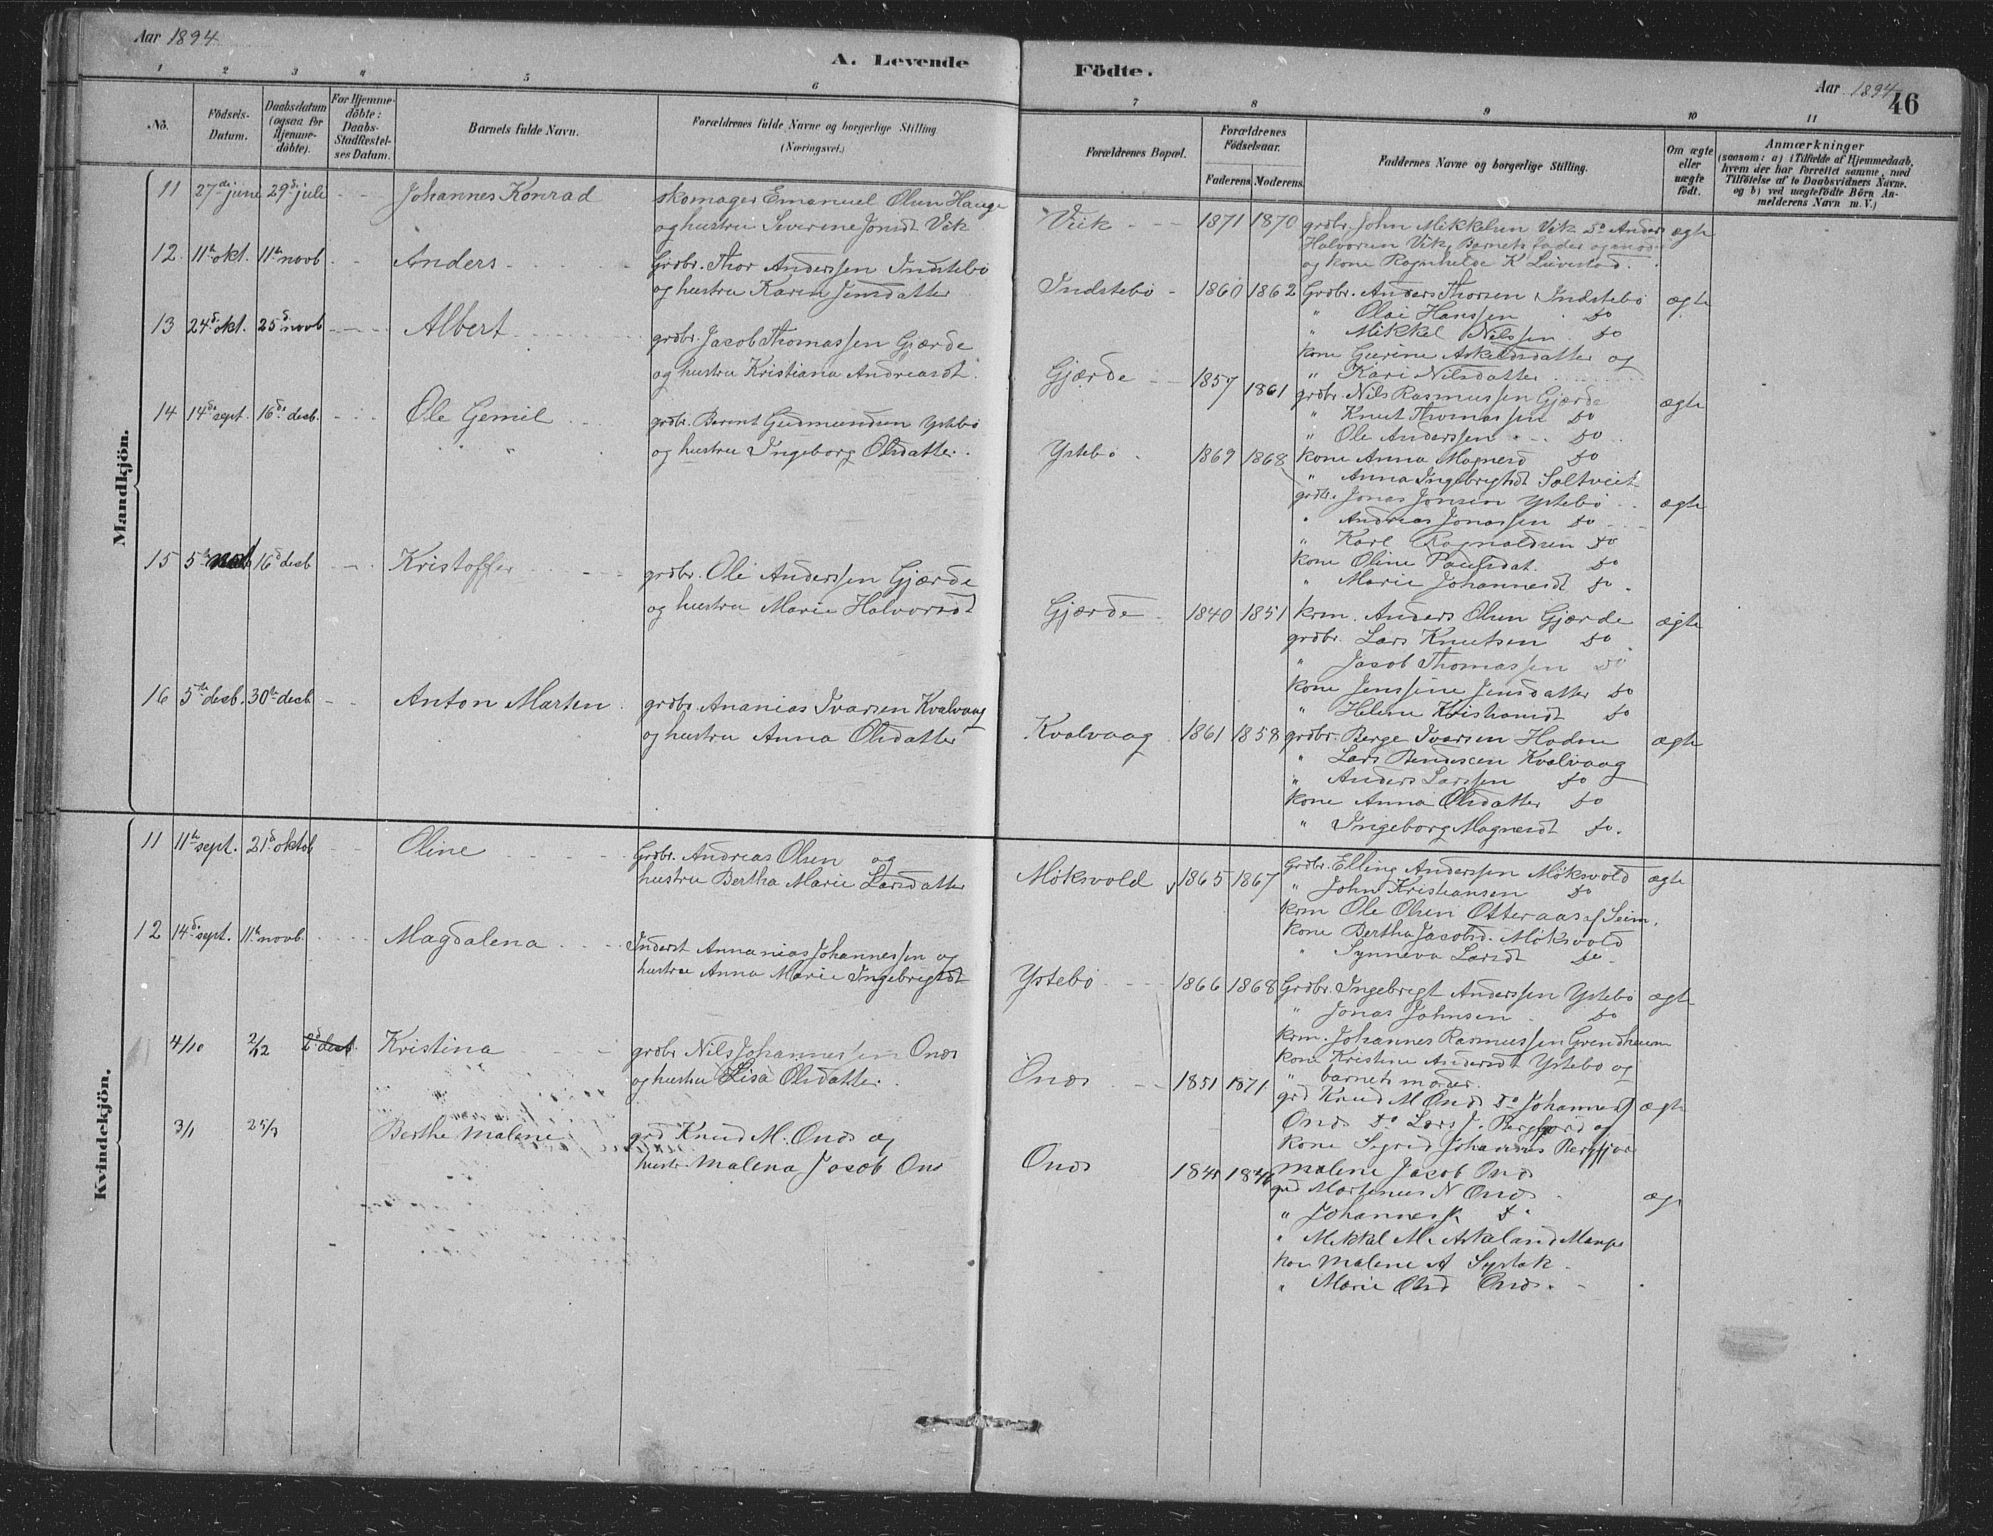 Aar 1894
A. Levende Födte.
Aar 1894
46
1 2 3 4 5 6 7 8 9 10 11
No.
Födsels-
Datum.
Daabsdatum
(ogsaa for
Hjemme-
döbte).
For Hjemme-
döbte:
Daabs-
Stadfæstel-
ses Datum.
Barnets fulde Navn.
Forældrenes fulde Navne og borgerlige Stilling
(Næringsvei.)
Forældrenes Bopæl.
Forældrenes
Födselsaar.
Faderens. Moderens.
Faddernes Navne og borgerlige Stilling.
Om ægte
eller
uægte
född.
Anmærkninger
(saasom: a) i Tilfælde af Hjemmedaab,
hvem der har forrettet samme, med
Tilföielse af to Daabsvidners Navne.
og b) ved uægtefödte Börn An-
melderens Navn m. V.)
Mandkjön.
11 27de june 29de juli Johannes Konrad
skomager Emanuel Olsen Hauge
og hustru Severine Jonsdt Vik
Viik 1871 1870 ægte
grdbr. John Mikkelsen Vik Do Anders
Halvorsen Vik, Barnets fader og
og kone Ragnhilde K
12 11te okt. 11te novb Anders
Grdbr. Thor Anderssen Indstebö
og hustru Karen Jensdatter
Indstebö 1860 1862 ægte
Grdbr. Anders Thorsen Indstebö
" Olai Hanssen do
" Mikkel Nilssen do
kone Gurine Askeldsdatter og
" Kari Nilsdatter
13 24de okt. 25de novb Albert
grdbr. Jacob Thomassen Gjærde
og hustru Kristiana Andreasdt.
Gjærde 1857 1861 ægte
grdbr. Nils Rasmussen Gjærde
" Knut Thomassen do
" Ole Anderssen do
kone Anna Magnesd do
" Anna Ingebrigtsdt Saltveit
14 14de sept. 16de decb. Ole Gemil
grdbr. Berent Gudmundsen Ystebö
og hustru Ingeborg Olsdatter.
Ystebö 1869 1868 ægte
grdbr. Jonas Jonsen Ystebö
" Andreas Jonassen do
" Karl Ragnaldsen do
kone Oline Paulsdat. do
" Marie Johannesdt do.
15 5te 16de decb Kristoffer
grdbr. Ole Anderssen Gjærde
og hustru Marie Halvorsdt
Gjærde 1840 1851 ægte
krm. Anders Olsen Gjærde
grdbr. Lars Knutsen do
" Jacob Thomassen do
kone Jenssine Jensdatter do
" Helene Kristiansdt do
16 5te decb. 30te decb Anton Marten
grdbr. Ananias Ivarsen Kvalvaag
og hustru Anna Olsdatter
Kvalvaag 1861 1858 ægte
grdbr. Berge Ivarsen Hadne
" Lars Bendixen Kvalvaag
" Anders Larssen do
kone Anna Olsdatter do
" Ingeborg Magnesdt do.
Kvindekjön.
11 11te sept. 21de oktob Oline
Grdbr. Andreas Olsen og
hustru Bertha Marie Larsdatter
Möksvold 1865 1867 ægte
Grdbr. Elling Anderssen Möksvold
" John Kristiansen do
krm Ole Olsen Otteraas af Seim.
kone Bertha Jacobsd. Möksvold
" Synneva Larsdt do.
12 14de sept. 11te novb. Magdalena
Inderst Annanias Johannessen og
hustru Anna Marie Ingebrigtsdt
Ystebö 1866 1868 ægte
Grdbr. Ingebrigt Anderssen Ystebö
" Jonas Johnsen do
krm. Johannes Rasmussen Grindheim
kone Kristine Andersdt Ystebö og
" barnets moder.
4/10 2/12 2de decb. Kristina
grdbr Nils Johannessen Onds
og hustru Lisa Olsdatter.
Onds 1851 1871 ægte
grd Knud M Onds Do Johannes
Onds Do Lars J. Bergfjord og
kone Sigrid Johannes
Malene Jacob Onds
3/1 25/3 Berthe Malene
grd Knud M. Onds og
hustr. Malena Jacob Ons
Onds 1845 1846 æg
grd Martinus N Onds
" Johannes do
" Mikkal M. Askeland
kon Malene A
" Marie Olsd Onds.